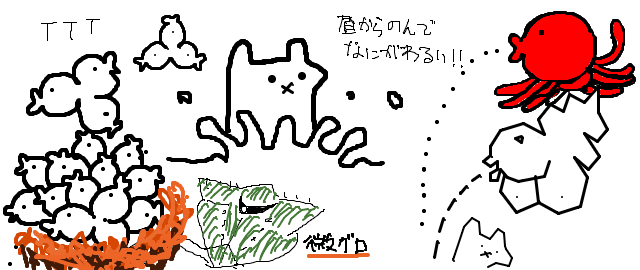 TTT
昼からのんで
なにがわるい!!
微グロ